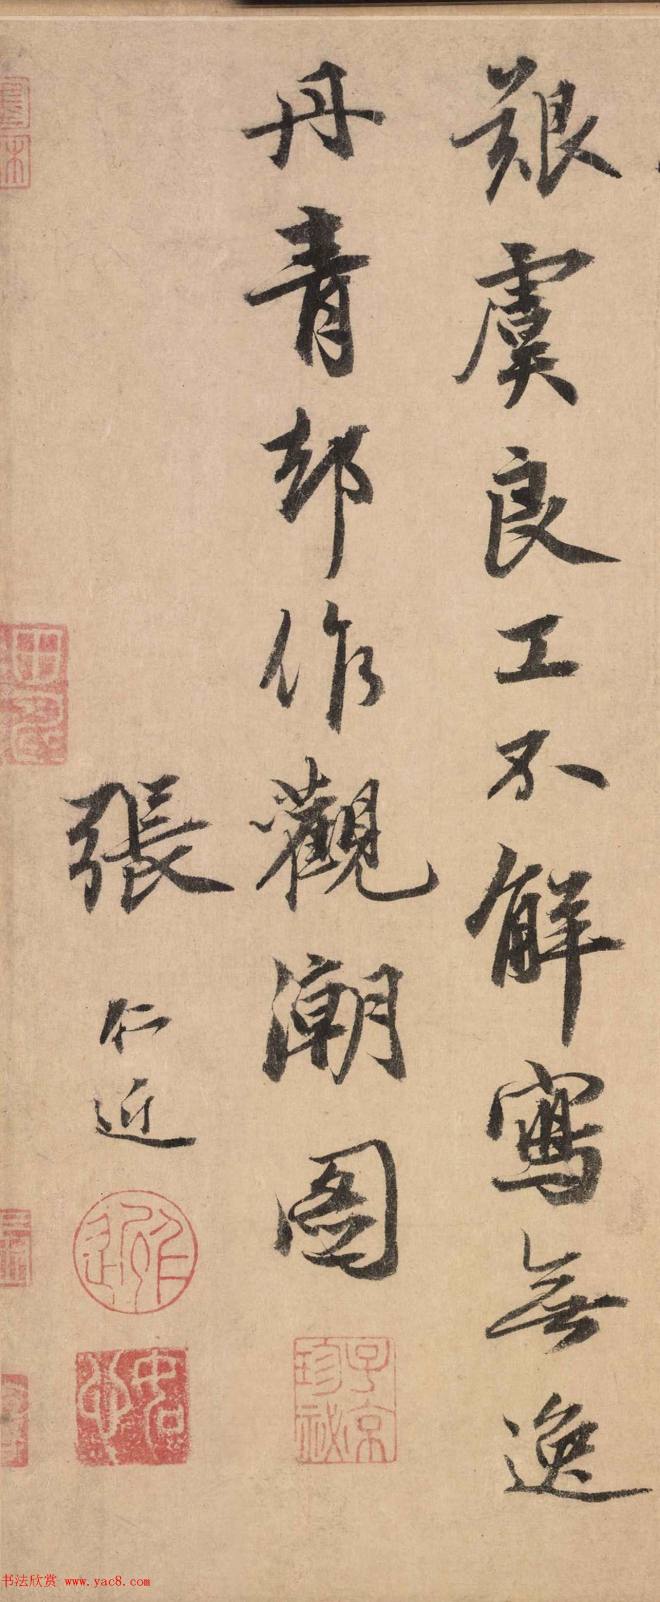 艱虞良工不解寫無逸
丹青却作觀潮圖
張仁近
子京珍祕
书法欣赏 www.yac8.com